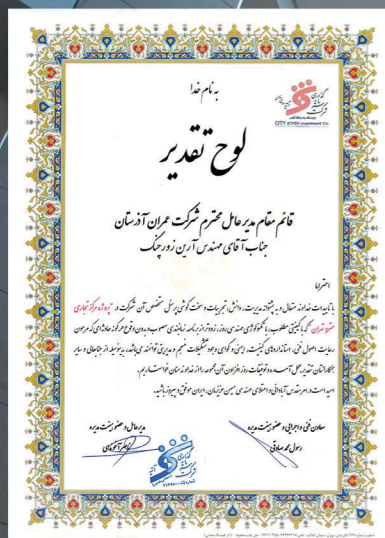 به نام خدا
شرکت سرمایه گذاری
CITY ATYEH Investment Co.
لوح تقدیر
قائم مقام مدیر عامل محترم شرکت عمران آذرستان
جناب آقای مهندس آرین زورچنگ
احتراما
با تاییدات خداوند متعال و به پشتوانه مدیریت، دانش، تجربیات و سخت کوشی پرسنل متخصص آن شرکت در "پروژه مرکز تجاری
مترو تهران" که با کیفیتی مطلوب، با تکنولوژی مهندسی روز، زودتر از برنامه زمانبندی مصوب و بدون وقوع هرگونه حادثه‌ای که مرهون
رعایت اصول فنی، استانداردهای کیفیت، ایمنی و گواهی وجود تشکیلات منسجم و مدیریتی توانمند می‌باشد، بدینوسیله از جنابعالی و سایر
همکارانتان تقدیر بعمل آمده و توفیقات روز افزون آن مجموعه را از خداوند منان خواستاریم.
امید است در امر مقدس آبادانی و اعتلای مهندسی میهن عزیزمان، ایران موفق و پیروز باشید.
معاون فنی و اجرایی و عضو هیئت مدیره
رسول محمد صادقی
مدیر عامل و عضو هیئت مدیره